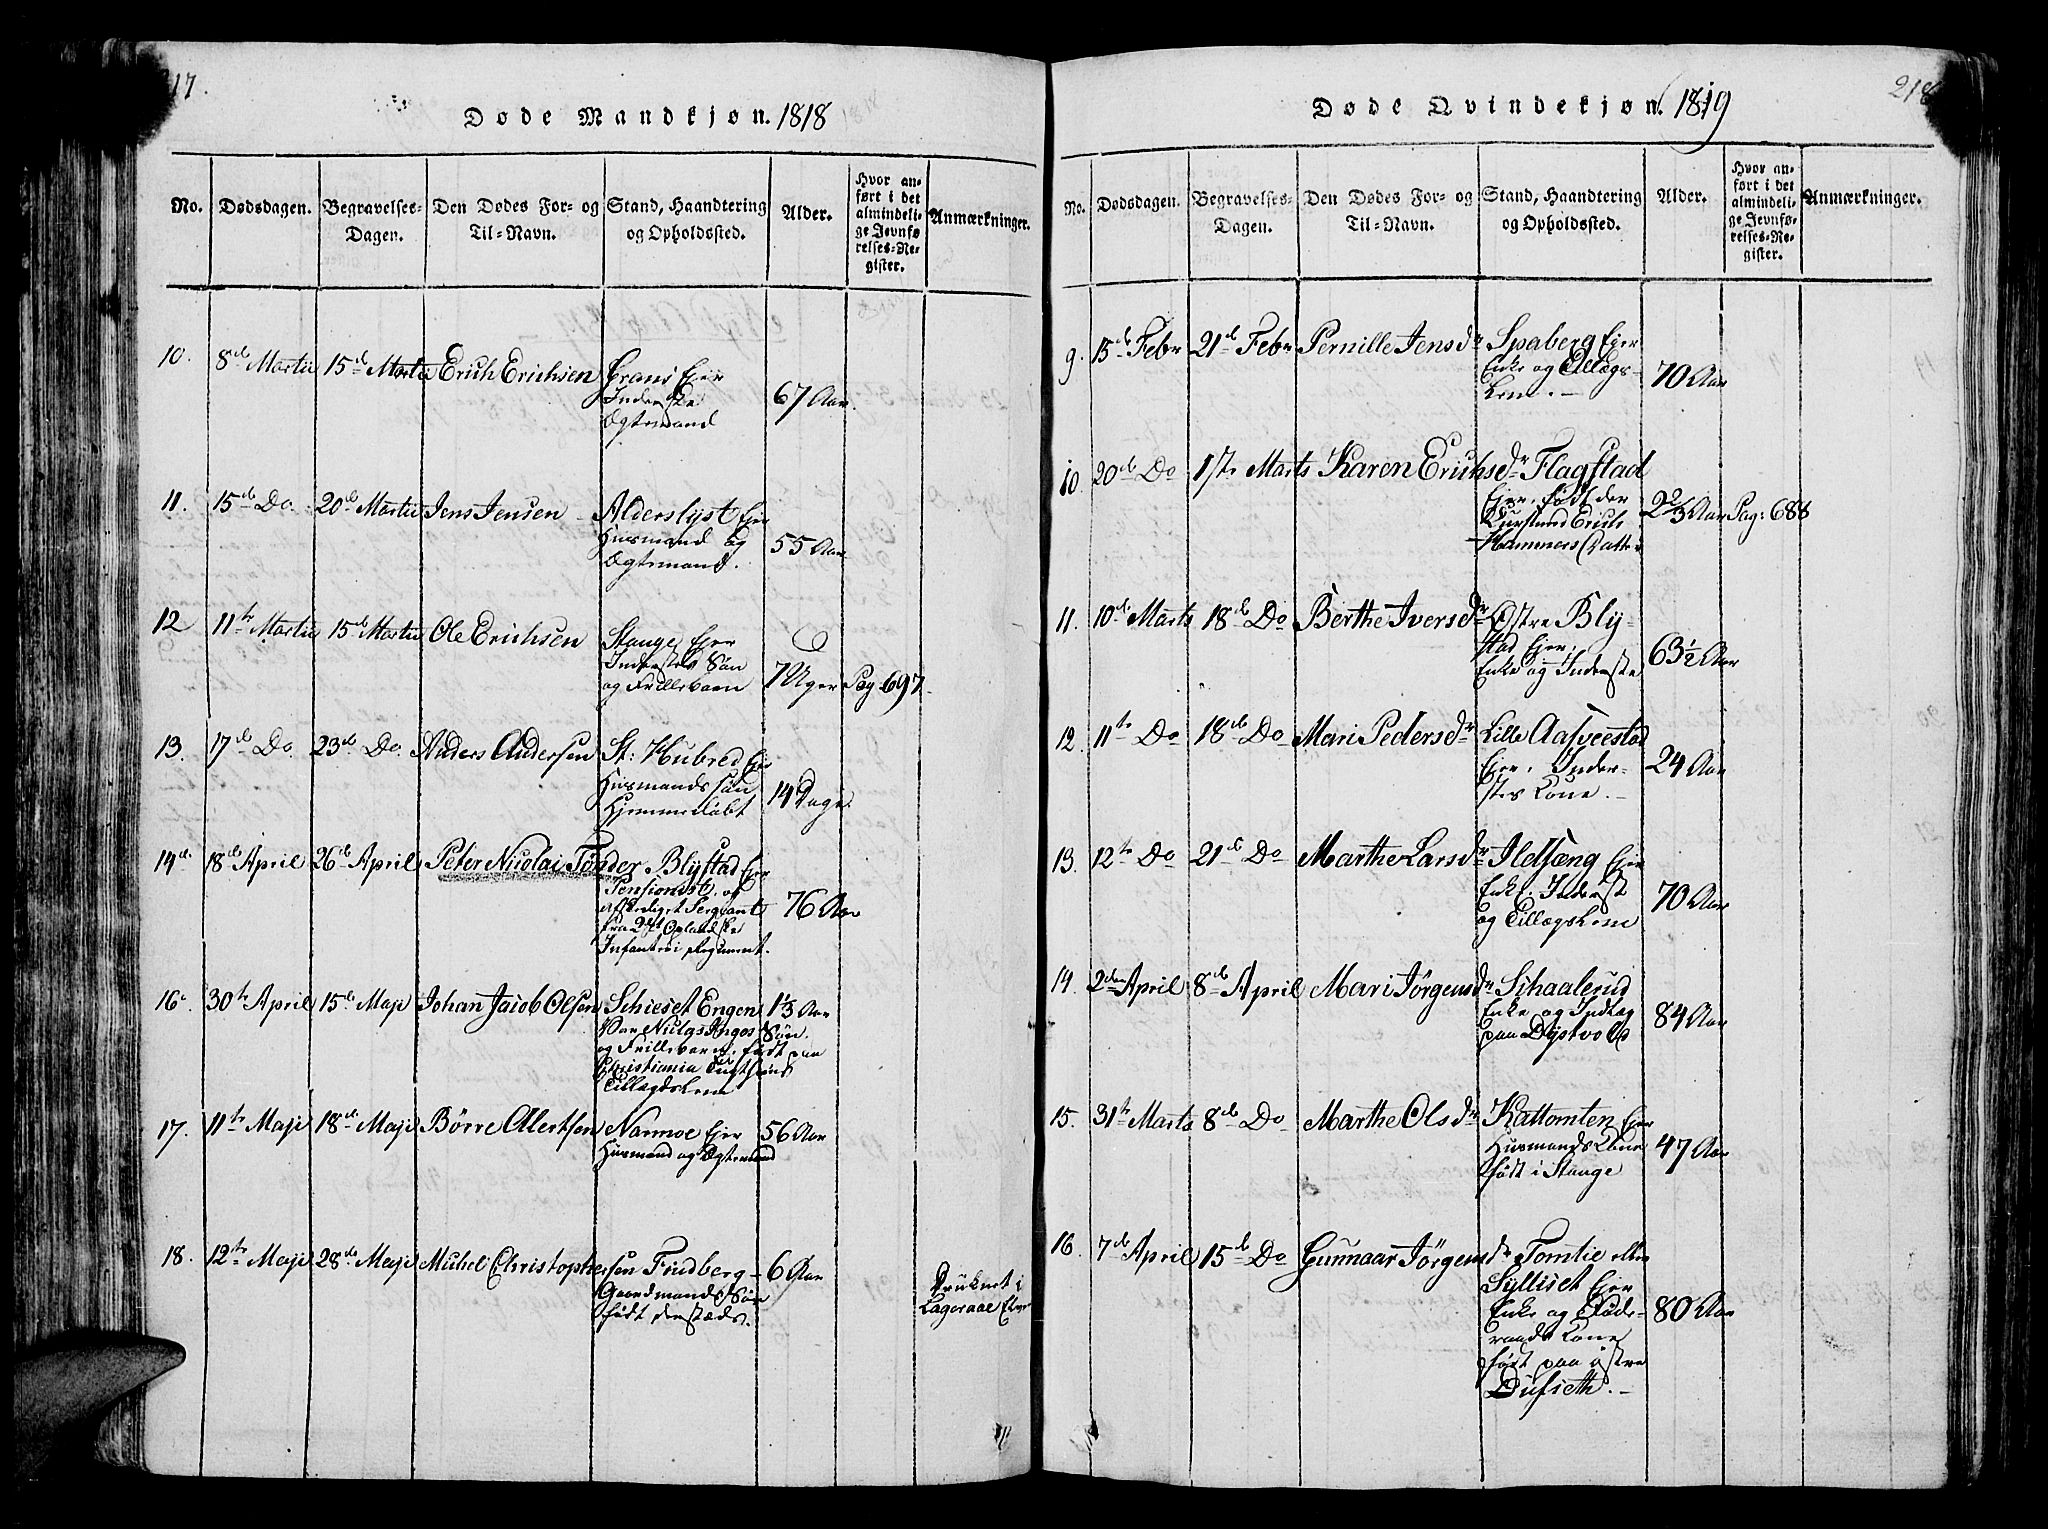 17.
Døde Mandkjøn. 1818
No.
Dødsdagen.
Begravelses-
Dagen.
Den Dødes For- og
Til-Navn.
Stand, Haandtering
og Opholdssted.
Alder.
Hvor an-
ført i det
almindeli-
ge Jevnfø-
relses-Re-
gister.
Anmærkninger.
10. 8de Martii 15de Martii Erich Erichsen
Eier
Inderste
Ægtemand
67 Aar.
11. 15de Do. 20de Martii Jens Jensen
Alderslyst Eier
Huusmand og
Ægtemand.
55 Aar
12 11te Martii 15de Martii Ole Erichsen
Stange Eier
Inderstes Søn
og Frillebarn
7 Uger Pag. 697.
13. 17de Do. 23de Do. Anders Andersen
St: Hubred Eier
Huusmands Søn
Hjemmedøbt
14 Dage
14de 18de April 26de April Peter Nicolai Tønder.
Blystad Eier
Pensionist. og
afskediget Sergeant
fra 2det Oplandske
Infanteri Regiment.
76 Aar
16. 30te April 15de Maji Johan Jacob Olsen
Schieset Engen
Søn.
og Frillebarn. født paa
Christiania Tugthuus
Tillægslem
1 1/3 Aar
17. 11te Maji 18de Maji Børre Alertsen
Narmoe Eier
Huusmand og Ægtemand
56 Aar
18. 12te Maji 28de Maji Michel Christophersen
Findberg
Gaardmands Søn
født densteds.
6 Aar
Druknet i
Lageraae Elver
218
Døde Qvindekjøn. 1819
No.
Dødsdagen.
Begravelses-
Dagen.
Den Dødes For- og
Til-Navn.
Stand, Haandtering
og Opholdssted.
Alder.
Hvor an-
ført i det
almindeli-
ge Jevnfø-
relses-Re-
gister.
Anmærkninger.
9. 15de Febr 21de Febr Pernille Jensdr
Spaberg Eier
Enke og Tillægs-
Lem.
70 Aar
10. 20de Do 1ste Marts Karen Erichsdr
Flagstad
Eier. født der
Erich
Hammers Datter
22/3 Aar Pag: 688
11. 10de Marts 18de Do Berthe Iversdr
Østre Bly-
stad Eier.
Enke og Inderste
63 1/2 Aar
12. 11te Do 18de Do Mari Pedersdr
Lille Aasveestad
Eier. Inder-
stes Kone.
24 Aar
13. 12te Do 21de Do Marthe Larsdr
Ildsæng Eier
Enke. Inderst
og Tillægslem
70 Aar
14. 2den April 8de April Mari Jørgensdr
Schaalerud
Enke og Indtag
paa Dystvold
84 Aar
15. 31te Marts 8de Do Marthe Olsdr
Kattomten Eier
Huusmands Kone
født i Stange
47 Aar
16. 7de April 15de Do Gunnaar Jørgensdr
Tomtie eller
Sylliset Eier
Enke og Føde-
raads Kone
født paa østre
Dufseth.
80 Aar